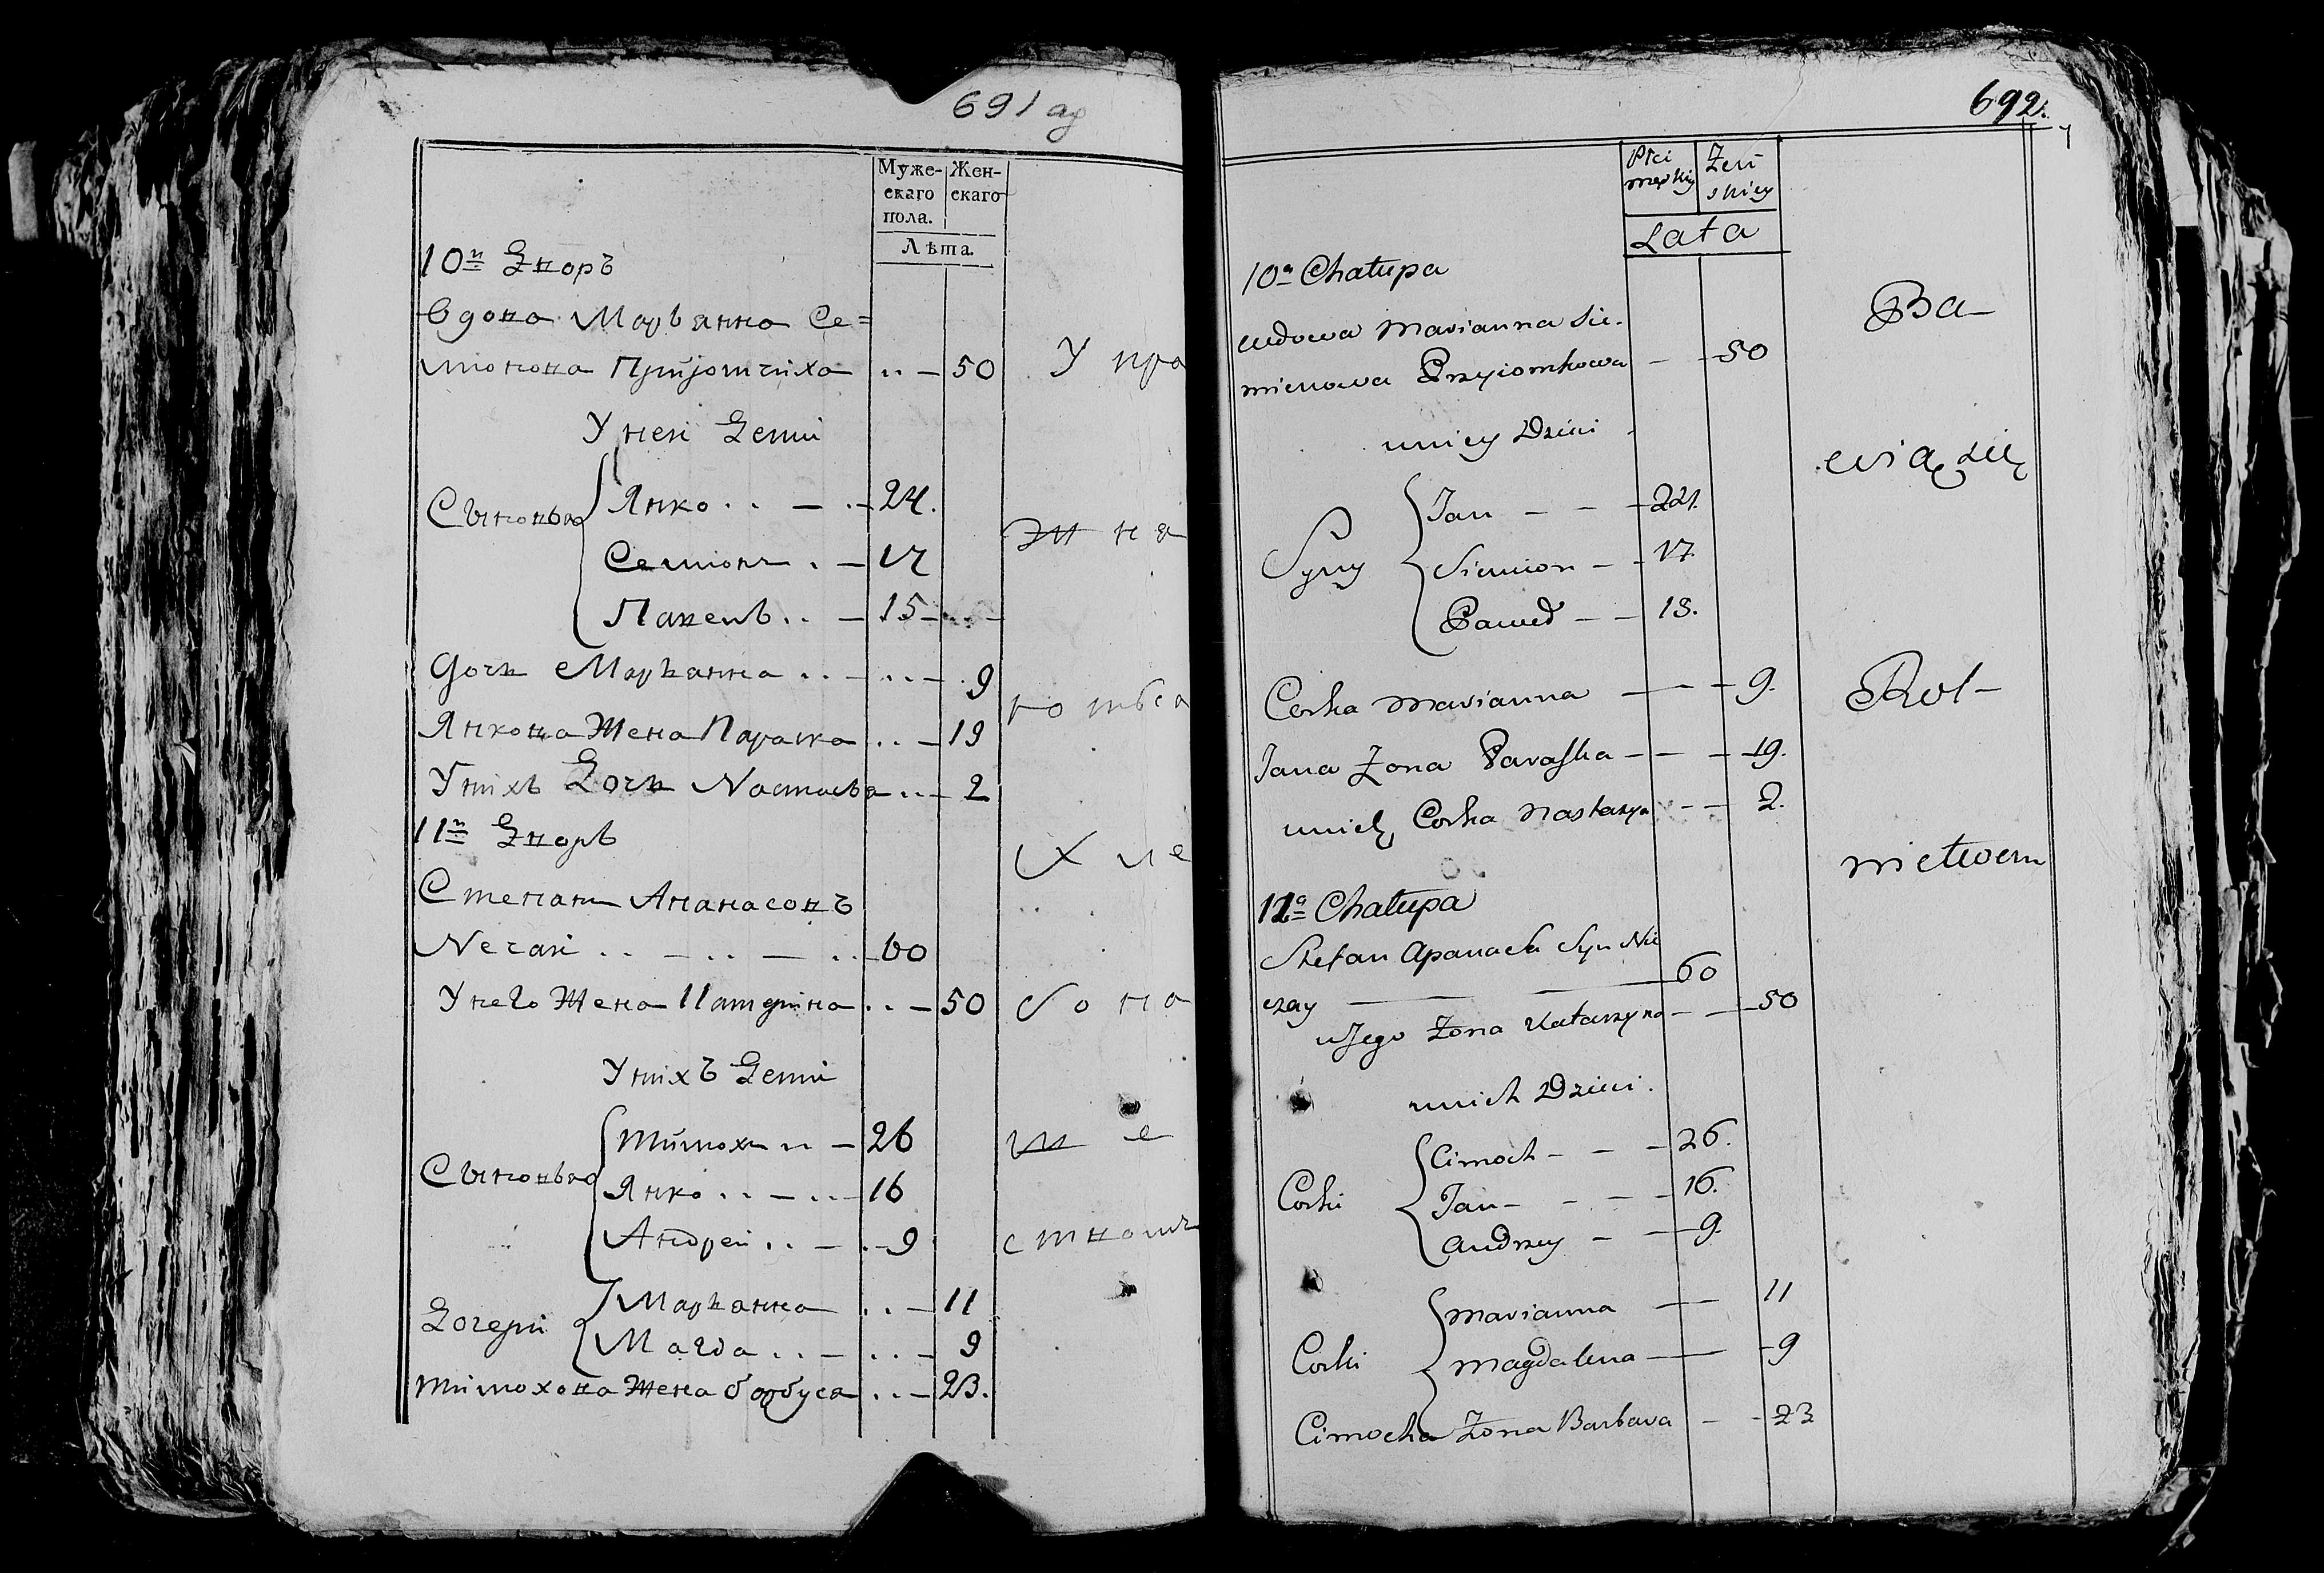 691 ад
Муже- Жен-
скаго скаго
пола.
Лѣта.
10й Дворъ
вдова Марьянна Се=
міонова Пріиіомчиха .. — 50
У неи Дети
Сыновья Янко .. — 24.
Семіонъ . — 17
Павелъ .. — 15
Дочь Марьянна .. — 9
Янкова Жена Параска .. — 19
У нихъ Дочь Настасья .. — 2
11й Дворъ
Степанъ Апанасовъ
Нечаи .. — .. — .. 60
У него Жена Катерина .. — 50
У нихъ Дети
Сыновья Тимохъ .. — 26
Янко .. — .. 16
Андреи .. — 9
Дочери Марьянна .. — 11
Магда .. — .. — 9
Тимохова Жена Барбуся .. — 23.
У пра
жня
ютьса
Хле
бопа
ше
ством
692.
Płci męskiey Żeńskiey
Lata
10a Chałupa
wdowa Marianna Sie-
mienowa Przyiomkowa — 50
u niey Dzieci
Syny Jan — — 24.
Siemion — 17.
Paweł — — 15.
Corka Marianna — 9.
Jana Żona Paraska — — 19.
u nich Corka Nastazya — 2.
11a Chałupa
Stefan Apanasa Syn Nie
czay — — 60
u Jego Żona Katarzyna — — 50
u nich Dzieci.
Corki Cimoch — — 26.
Jan — — 16.
Andrzey — — 9.
Corki Marianna — 11
Magdalena — 9
Cimocha Żona Barbara — 23
Ba-
wią się
Rol-
nictwem